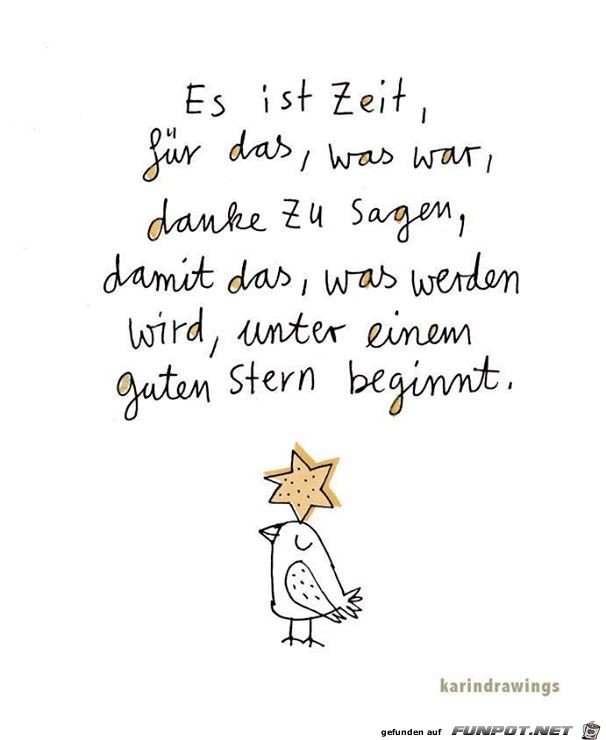 Es ist Zeit,
für das, was war,
danke zu sagen,
damit das, was werden
wird, unter einem
guten Stern beginnt.
karindrawings
gefunden auf FUNPOT.NET